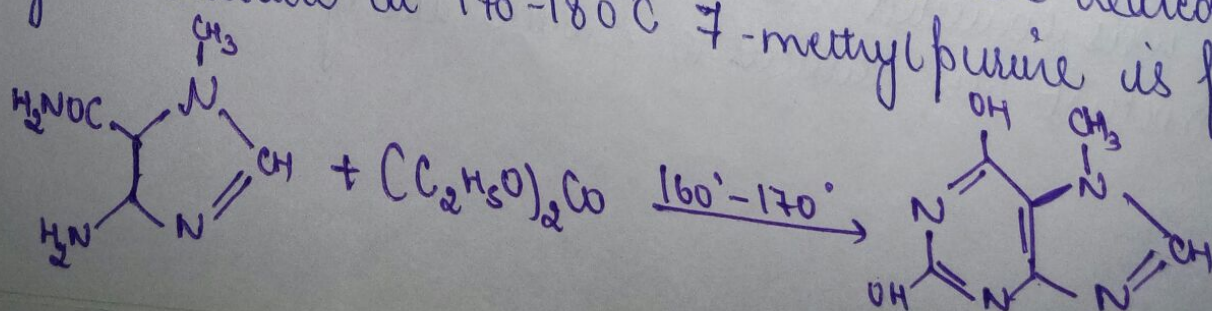 170-180C
7-methylpurine is
CH₃
H₂NOC N CH
H₂N N
+ (C₂H₅O)₂Co
160°-170°
OH CH₃
N N CH
OH N N